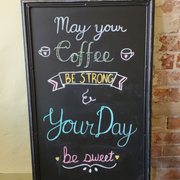 May your
Coffee
BE STRONG
&
Your Day
be sweet